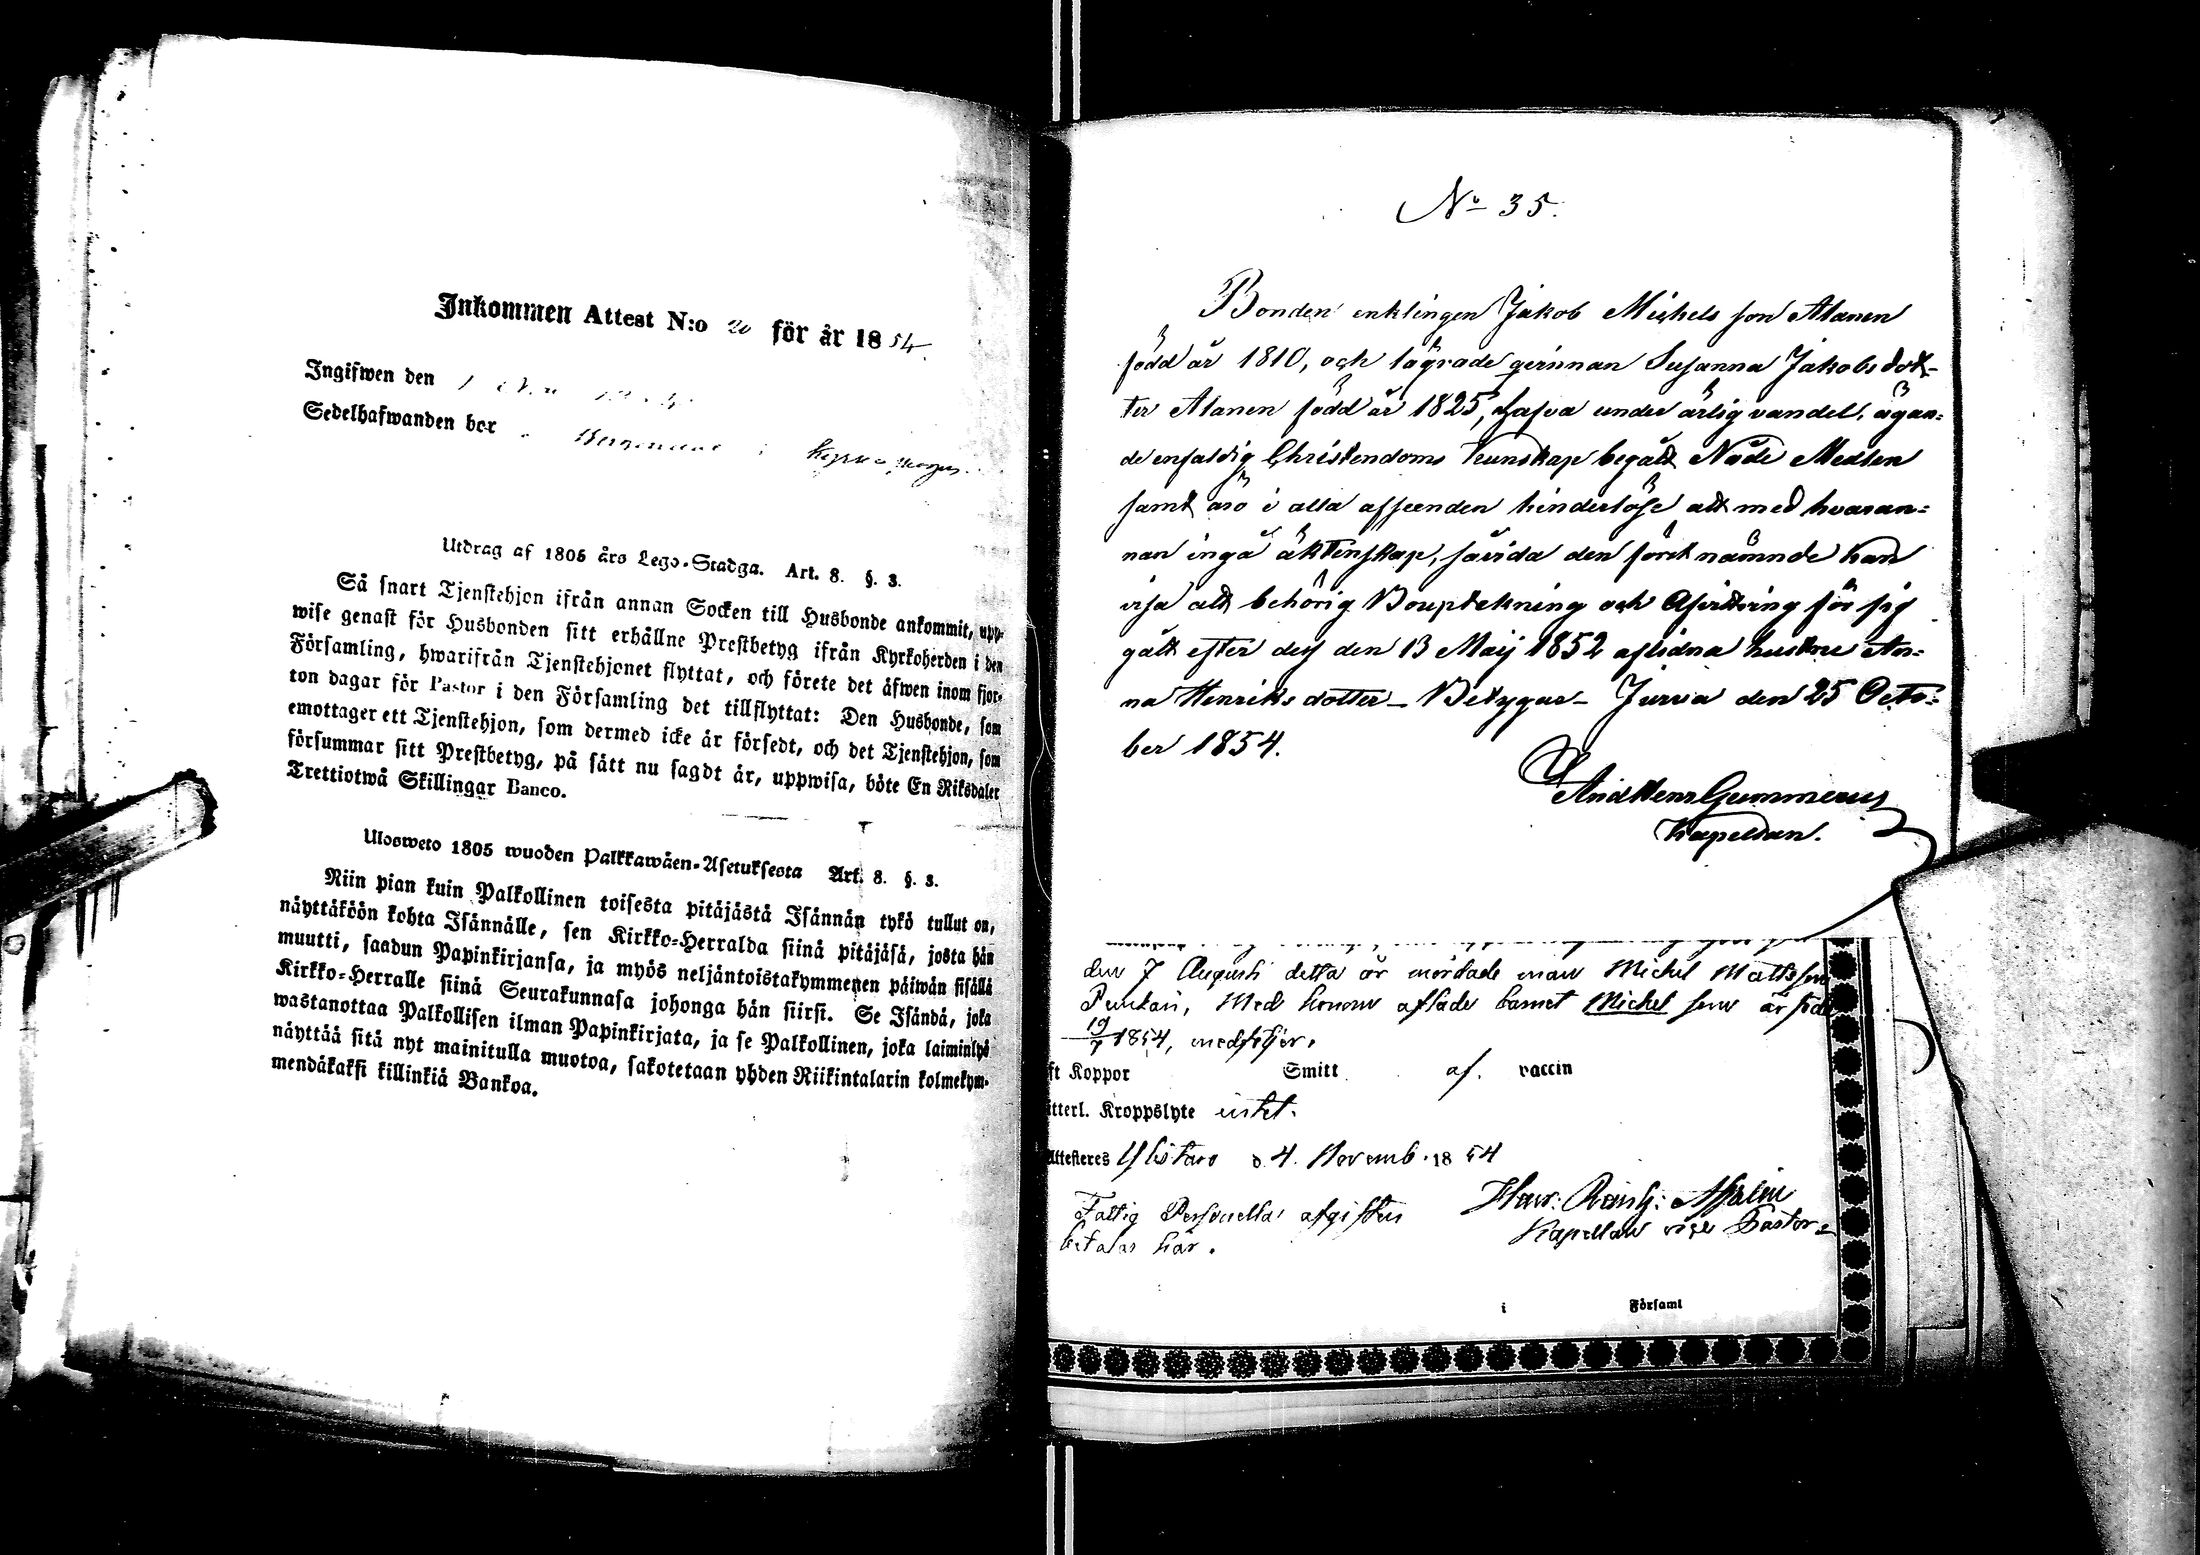 Inkommen Attest N:o 20 för år 1854.
Ingifwen den 1
Sedelhafwanden bor
Utdrag af 1805 års Lego-Stadga. Art. 8. §. 3.
Så snart Tjenstehjon ifrån annan Socken till Husbonde ankommit, upp-
wise genast för Husbonden sitt erhållne Prestbetyg ifrån Kyrkoherden i den
Församling, hwarifrån Tjenstehjonet flyttat, och förete det äfwen inom fjor-
ton dagar för Pastor i den Församling det tillflyttat: Den Husbonde, som
emottager ett Tjenstehjon, som dermed icke är försedt, och det Tjenstehjon, som
försummar sitt Prestbetyg, på sätt nu sagdt är, uppwisa, böte En Riksdaler
Trettiotwå Skillingar Banco.
Ulosweto 1805 wuoden Palkkawäen-Asetuksesta Art. 8. §. 3.
Niin pian kuin Palkollinen toisesta pitäjästä Isännän tykö tullut on,
näyttäköön kohta Isännälle, sen Kirkko-Herralda siinä pitäjäsä, josta hän
muutti, saadun Papinkirjansa, ja myös neljäntoistakymmenen päiwän sisällä
Kirkko-Herralle siinä Seurakunnasa johonga hän siirsi. Se Isändä, joka
wastanottaa Palkollisen ilman Papinkirjata, ja se Palkollinen, joka laiminlyö
näyttää sitä nyt mainitulla muotoa, sakotetaan yhden Riikintalarin kolmekym-
mendäkaksi killinkiä Bankoa.
No 35.
Bonden enklingen Jakob Michels son Alanen
född år 1810, och lägrade qvinnan Susanna Jakobs dot-
ter Alanen född år 1825, hafva under ärlig vandel, ägan-
de enfaldig Christendoms Kunskap begått Nåde Medlen
samt äro i alla afseenden hinderlöse att med hvaran=
nan ingå äktenskap, såvida den förstnämnde kan
visa att behörig Boupptekning och Afvittring för sig
gått efter dess den 13 Maij 1852 aflidna hustru An=
na Henriks dotter – Betygar – Jurva den 25 Octo=
ber 1854.
And Henr Gummerus
Kapellan.
den 7 Augusti detta år mördade man Michel Mattsson
Med honom aflade barnet Michel som är född
19/7 1854, medföljer.
ft Koppor Smitt af. vaccin
itterl. Kroppslyte intet.
Attesteres Ylistaro d. 4. Novemb. 1854
Fattig Personella afgiften
betalas här.
Kapellan vice Pastor
i Församl